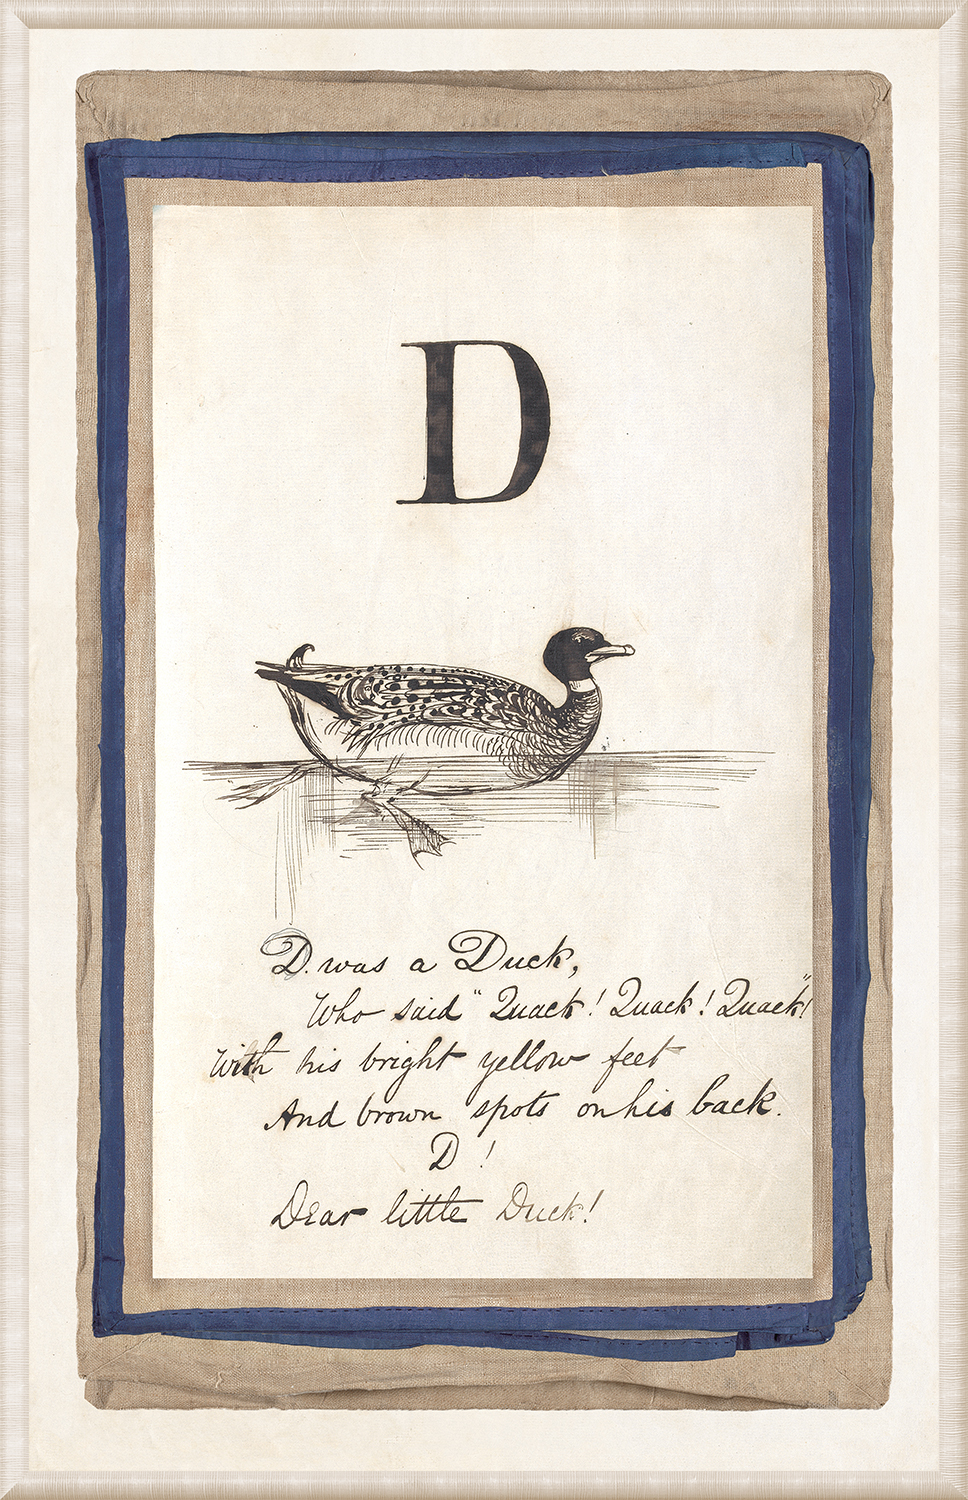 D
D. was a Duck,
Who said "Quack! Quack! Quack"!
With his bright yellow feet
And brown spots on his back.
D!
Dear little Duck!